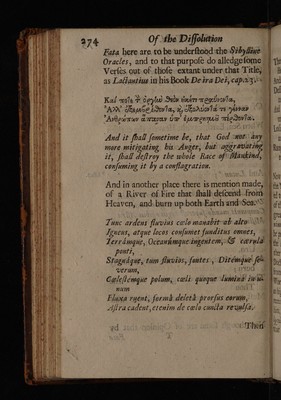 274
Of the Dissolution
Fata here are to be understood the Sibylline
Oracles, and to that purpose do alledge some
Verses out of those extant under that Title,
as Lactantius in his Book De ira Dei, cap. 23.
Καί ποτε
And it shall sometime be, that God not any
more mitigating his Anger, but aggravating
it, shall destroy the whole Race of Mankind,
consuming it by a conflagration.
And in another place there is mention made,
of a River of Fire that shall descend from
Heaven, and burn up both Earth and Sea.
Tunc ardens fluvius cælo manabit ab alto
Igneus, atque locos consumet funditus omnes,
Terrámque, Oceanúmque ingentem, & cærula
ponti,
Stagnáque, tum fluvios, fontes, Ditémque se-
verum,
Cælestémque polum, cæli quoque lumina in u-
num
Fluxa ruent, formâ deletâ prorsus eorum,
Astra cadent, etenim de cælo cuncta revulsa.
Then